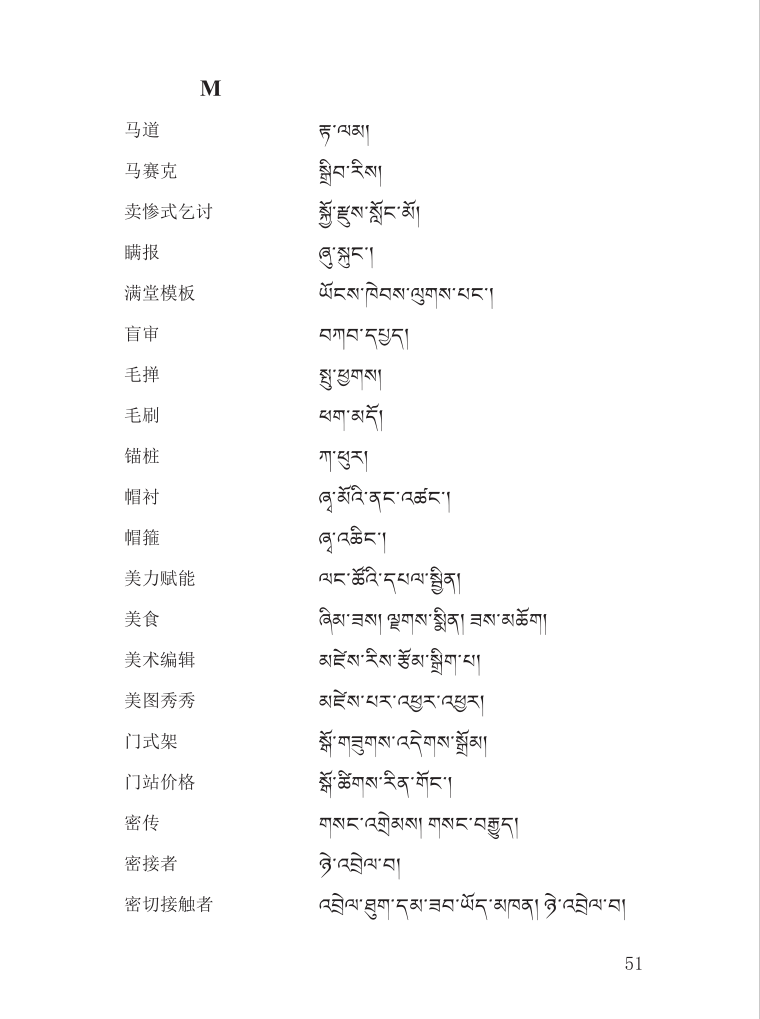 M
马道 རྟ་ལམ།
马赛克 སྒྲིབ་རིས།
卖惨式乞讨 སྐྱོ་རྫུས་སློང་མོ།
瞒报 ཞུ་སྐུང་།
满堂模板 ཡོངས་ཁེབས་ལུགས་པང་།
盲审 བཀབ་དཔྱད།
毛掸 སྤུ་ཕྱགས།
毛刷 ཕག་མདོ།
锚桩 ཀ་ཕུར།
帽衬 ཞྭ་མོའི་ནང་འཚང་།
帽箍 ཞྭ་འཆིང་།
美力赋能 ལང་ཚོའི་དཔལ་སྦྱིན།
美食 ཞིམ་ཟས། ལྗགས་སྨིན། ཟས་མཆོག།
美术编辑 མཛེས་རིས་རྩོམ་སྒྲིག་པ།
美图秀秀 མཛེས་པར་འཕྱུར་འཕྱུར།
门式架 སྒོ་གཟུགས་འདེགས་སྒྲོམ།
门站价格 སྒོ་ཚིགས་རིན་གོང་།
密传 གསང་འགྲེམས། གསང་བརྒྱུད།
密接者 ཉེ་འབྲེལ་བ།
密切接触者 འབྲེལ་ཐུག་དམ་ཟབ་ཡོད་མཁན། ཉེ་འབྲེལ་བ།
51